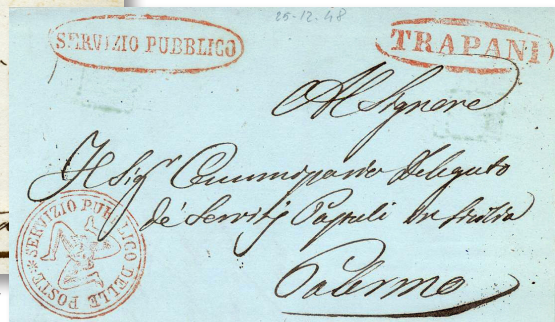 25-12-48
SERVIZIO PUBBLICO
TRAPANI
Al Signore
Il Sigr Commissario Delegato
de' Servizj Papali in Sicilia
Palermo
* SERVIZIO PUBBLICO DELLE POSTE